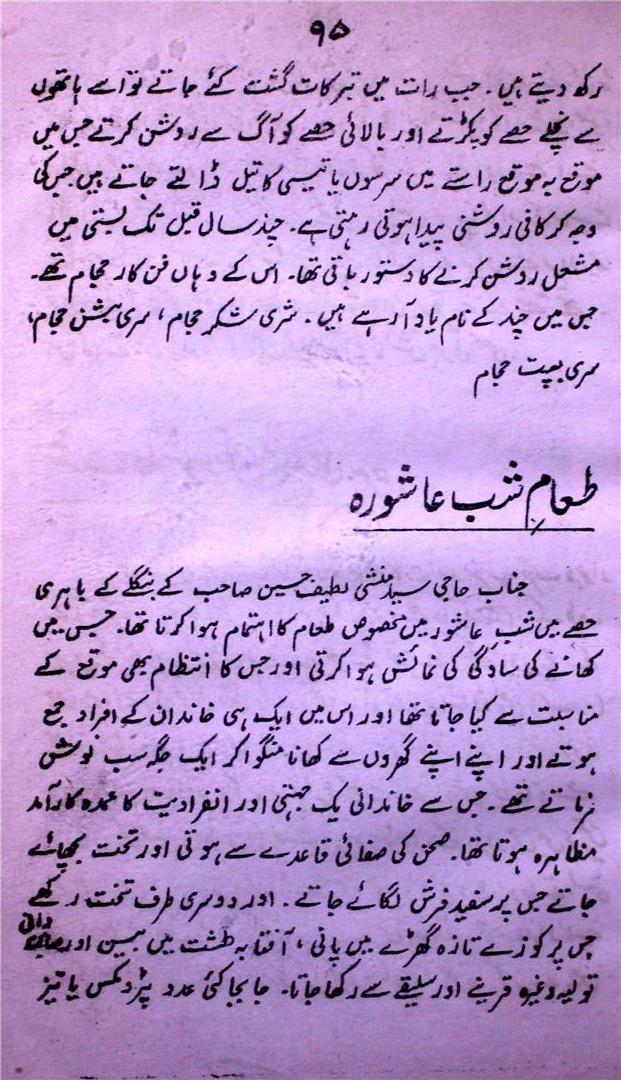 ۹۵
رکھ دیتے ہیں۔ جب رات میں تبرکات گشت کئے جاتے تو اسے ہاتھوں
سے نچلے حصے کو پکڑتے اور بالائی حصے کو آگ سے روشن کرتے جس میں
موقع بہ موقع راستے میں سرسوں یا تیسی کا تیل ڈالتے جاتے ہیں جس کی
وجہ کر کافی روشنی پیدا ہوتی رہتی ہے۔ چند سال قبل تک بستی میں
مشعل روشن کرنے کا دستور باقی تھا۔ اس کے وہاں فن کار حجام تھے۔
جس میں چند کے نام یاد آرہے ہیں۔ شری شنکر حجام، سری بشن حجام،
سری بھپت حجام
طعامِ شب عاشورہ
جناب حاجی سید منشی لطیف حسین صاحب کے بنگلے کے باہری
حصے میں شب عاشور میں مخصوص طعام کا اہتمام ہوا کرتا تھا۔ جس میں
کھانے کی سادگی کی نمائش ہوا کرتی اور جس کا انتظام بھی موقع کے
مناسبت سے کیا جاتا تھا اور اس میں ایک ہی خاندان کے افراد جمع
ہوتے اور اپنے اپنے گھروں سے کھانا منگوا کر ایک جگہ سب نوش
فرماتے تھے۔ جس سے خاندانی یک جہتی اور انفرادیت کا عمدہ کارآمد
مظاہرہ ہوتا تھا۔ صحن کی صفائی قاعدے سے ہوتی اور تخت بچھائے
جاتے جس پر سفید فرش لگائے جاتے۔ اور دوسری طرف تخت رکھے
جس پر کوزے تازہ گھڑے میں پانی، آفتابہ طشت میں بیسن اور صابن دانی
تولیہ وغیرہ قرینے اور سلیقے سے رکھا جاتا۔ جا بجا کئی عدد پٹرومکس یا تیز